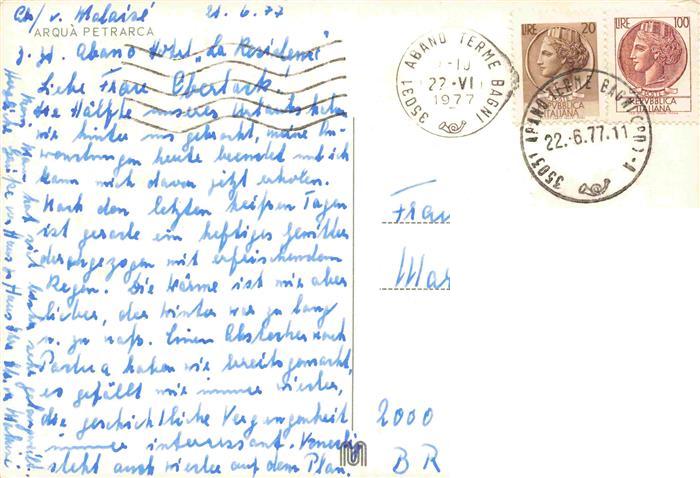 Ch/ v. Malaisé 21.6.77
ARQUÀ PETRARCA
z. Zt. Abano Hotel "La Residence"
Liebe Frau
Die Hälfte unseres Urlaubs haben
wir hinter uns gebracht, meine An-
wendungen heute beendet und ich
kann mich davon jetzt erholen.
Nach den letzten heißen Tagen
ist gerade ein heftiges Gewitter
drübergezogen mit erfrischendem
Regen. Die Wärme ist mir aber
lieber, der Winter war zu lang
u. zu naß. Einen Abstecher nach
Padua haben wir bereits gemacht,
es gefällt mir immer wieder,
die geschichtliche Vergangenheit
immer interessant. Venedig
steht auch wieder auf dem Plan.
Herzliche Grüße von Haus zu Haus Ihre
35031 ABANO TERME BAGNI
22-VI
1977
LIRE 20
REPUBBLICA
ITALIANA
LIRE 100
POSTE
REPVBBLICA
ITALIANA
35031 ABANO TERME BAGNI (PD)-A
22.-6.77.11
Frau
Mar
2000
BR